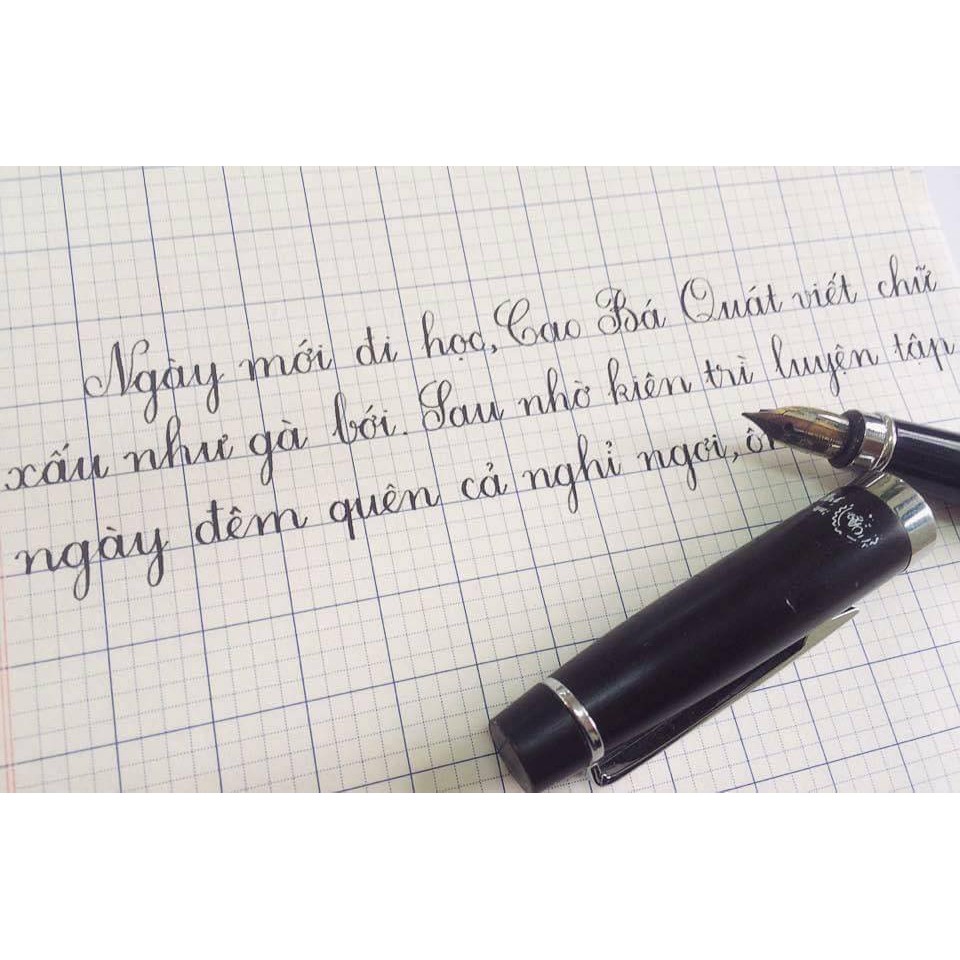 Ngày mới đi học, Cao Bá Quát viết chữ
xấu như gà bới. Sau nhờ kiên trì luyện tập
ngày đêm quên cả nghỉ ngơi,